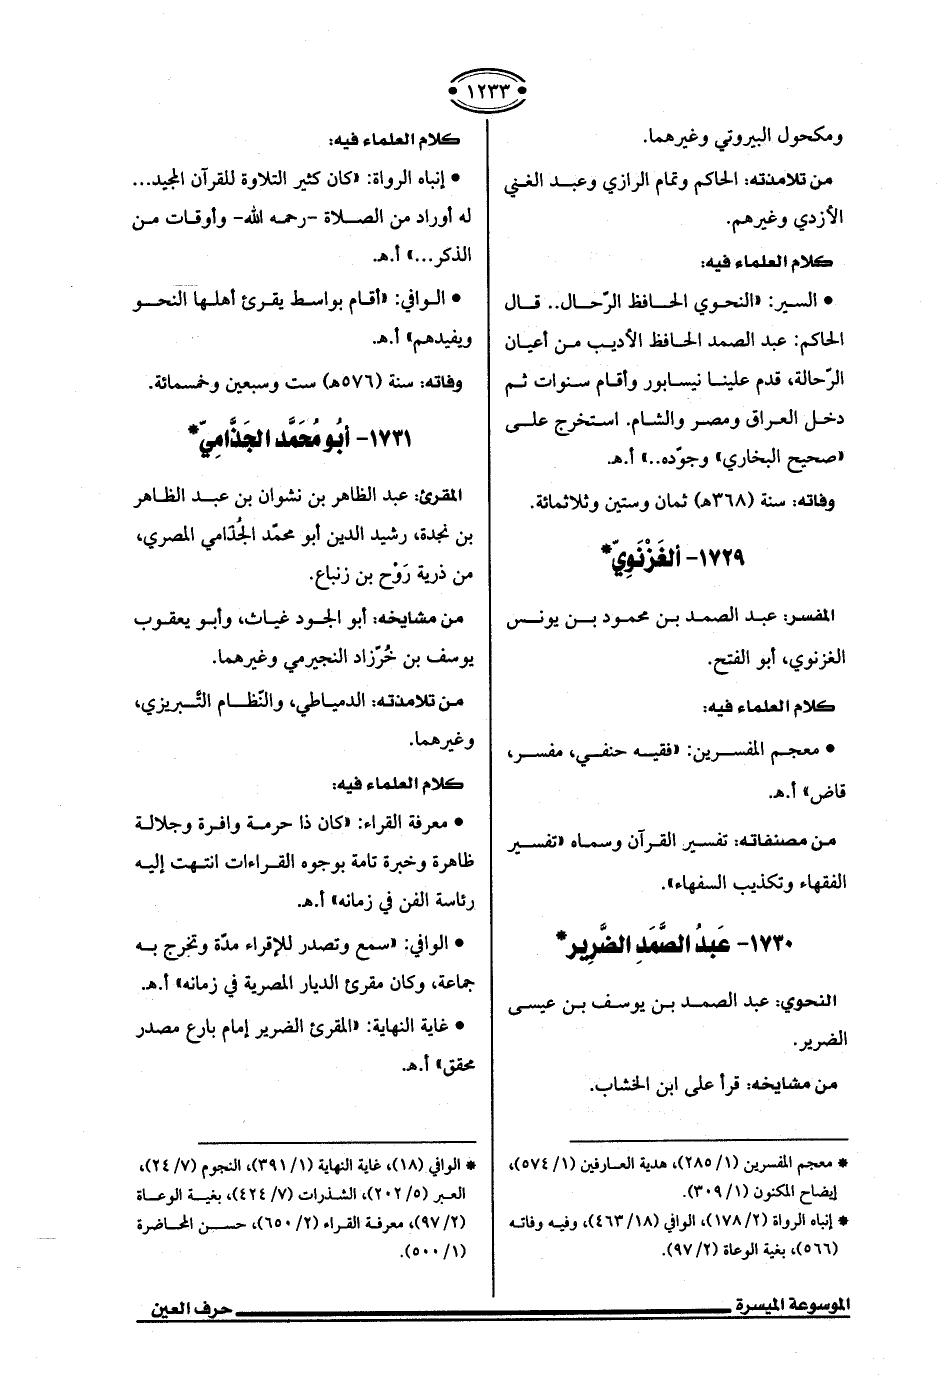 ١٢٣٣
ومكحول البيروتي وغيرهما.
من تلامذته: الحاكم وتمام الرازي وعبد الغني
الأزدي وغيرهم.
كلام العلماء فيه:
• السير: «النحوي الحافظ الرّحال.. قال
الحاكم: عبد الصمد الحافظ الأديب من أعيان
الرّحالة، قدم علينا نيسابور وأقام سنوات ثم
دخل العراق ومصر والشام. استخرج على
«صحيح البخاري» وجوّده..» أ.هـ.
وفاته: سنة (٣٦٨هـ) ثمان وستين وثلاثمائة.
١٧٢٩- ألغَزْنَوِيّ*
المفسر: عبد الصمد بن محمود بن يونس
الغزنوي، أبو الفتح.
كلام العلماء فيه:
• معجم المفسرين: «فقيه حنفي، مفسر،
قاض» أ.هـ.
من مصنفاته: تفسير القرآن وسماه «تفسير
الفقهاء وتكذيب السفهاء».
١٧٣٠- عَبدُ الصَّمَدِ الضَّرِير*
النحوي: عبد الصمد بن يوسف بن عيسى
الضرير.
من مشايخه: قرأ على ابن الخشاب.
* معجم المفسرين (١/ ٢٨٥)، هدية العارفين (١/ ٥٧٤)،
إيضاح المكنون (١/ ٣٠٩).
* إنباه الرواة (٢/ ١٧٨)، الوافي (١٨/ ٤٦٣)، وفيه وفاته
(٥٦٦)، بغية الوعاة (٢/ ٩٧).
كلام العلماء فيه:
• إنباه الرواة: «كان كثير التلاوة للقرآن المجيد...
له أوراد من الصلاة -رحمه الله- وأوقات من
الذكر...» أ.هـ.
• الوافي: «أقام بواسط يقرئ أهلها النحو
ويفيدهم» أ.هـ.
وفاته: سنة (٥٧٦هـ) ست وسبعين وخمسمائة.
١٧٣١- أبُو مُحَمَّد الجَذَّامِيّ*
المقرئ: عبد الظاهر بن نشوان بن عبد الظاهر
بن نجدة، رشيد الدين أبو محمّد الجُذَامي المصري،
من ذرية رَوْح بن زنباع.
من مشايخه: أبو الجود غياث، وأبو يعقوب
يوسف بن خُرّزاد النجيرمي وغيرهما.
من تلامذته: الدمياطي، والنّظام التَّبريزي،
وغيرهما.
كلام العلماء فيه:
• معرفة القراء: «كان ذا حرمة وافرة وجلالة
ظاهرة وخبرة تامة بوجوه القراءات انتهت إليه
رئاسة الفن في زمانه» أ.هـ.
• الوافي: «سمع وتصدر للإقراء مدّة وتخرج به
جماعة، وكان مقرئ الديار المصرية في زمانه» أ.هـ.
• غاية النهاية: «المقرئ الضرير إمام بارع مصدر
محقق» أ.هـ.
* الوافي (١٨)، غاية النهاية (١/ ٣٩١)، النجوم (٧/ ٢٤)،
العبر (٥/ ٢٠٢)، الشذرات (٧/ ٤٢٤)، بغية الوعاة
(٢/ ٩٧)، معرفة القراء (٢/ ٦٥٠)، حسن المحاضرة
(١/ ٥٠٠).
الموسوعة الميسرة
حرف العين